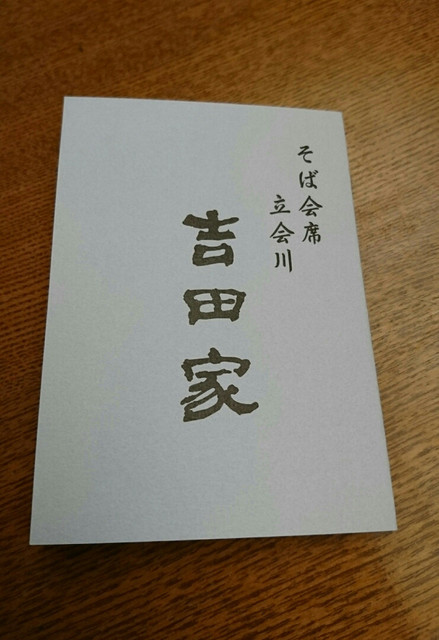 そば会席
立会川
吉田家